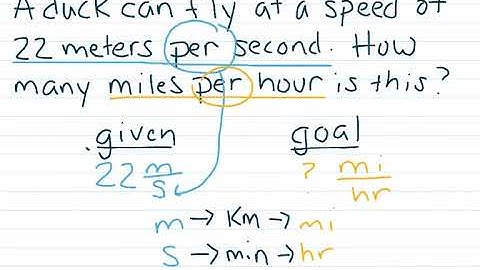 A duck can fly at a speed of
22 meters per second. How
many miles per hour is this?
given goal
22 m/s ? mi/hr
m → Km → mi
s → min → hr